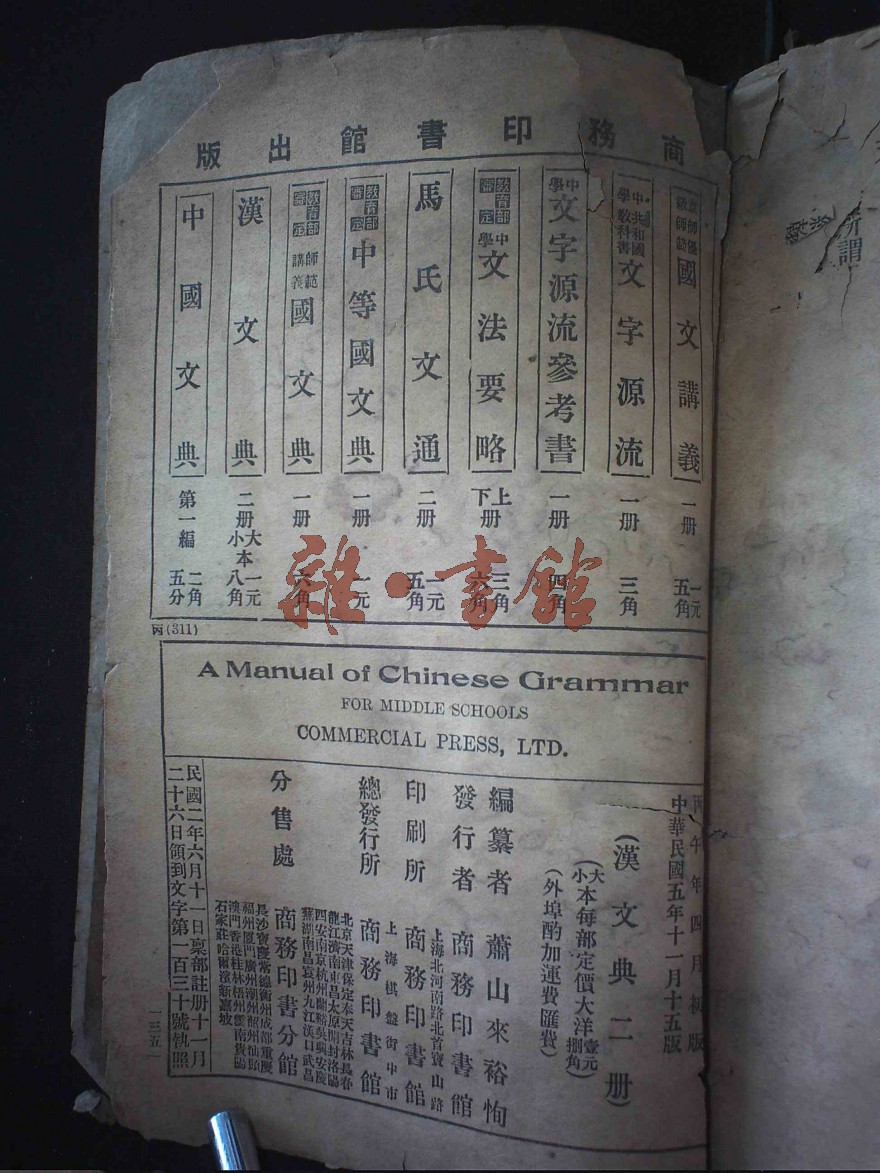 商務印書館出版
國文講義 一册 一元五角
中學 共和國教科書 文字源流 一册 三角
中學 文字源流參考書 一册 四角
教育部審定 中學 文法要略 上下册 三角六角
馬氏文通 二册 一元五角
教育部審定 中等國文典 一册 一元
教育部審定 師範講義 國文典 一册 六角
漢文典 二册 大本一元 小本八角
中國文典 第一編 二角五分
丙(311)
雜·書館
A Manual of Chinese Grammar
FOR MIDDLE SCHOOLS
COMMERCIAL PRESS, LTD.
丙午年四月初版
中華民國五年十一月十五版
(漢文典二册)
(大本每部定價大洋壹元
小本每部定價大洋捌角)
(外埠酌加運費匯費)
編纂者 蕭山來裕恂
發行者 商務印書館
上海北河南路北首寶山路
印刷所 商務印書館
上海棋盤街中市
總發行所 商務印書館
分售處 商務印書分館
北京天津保定奉天吉林長春
龍江濟南東昌太原開封洛陽
西安南京杭州蘭谿吳興安慶
蕪湖南昌袁州九江漢口武昌
長沙寶慶常德衡州成都重慶
福州廈門廣州潮州韶州汕頭
澳門香港桂林梧州雲南貴陽
石家莊哈爾濱新嘉坡
民國二年六月十一日稟部註册十一月
二十六日領到文字第一百三十號執照
一三五一
所謂